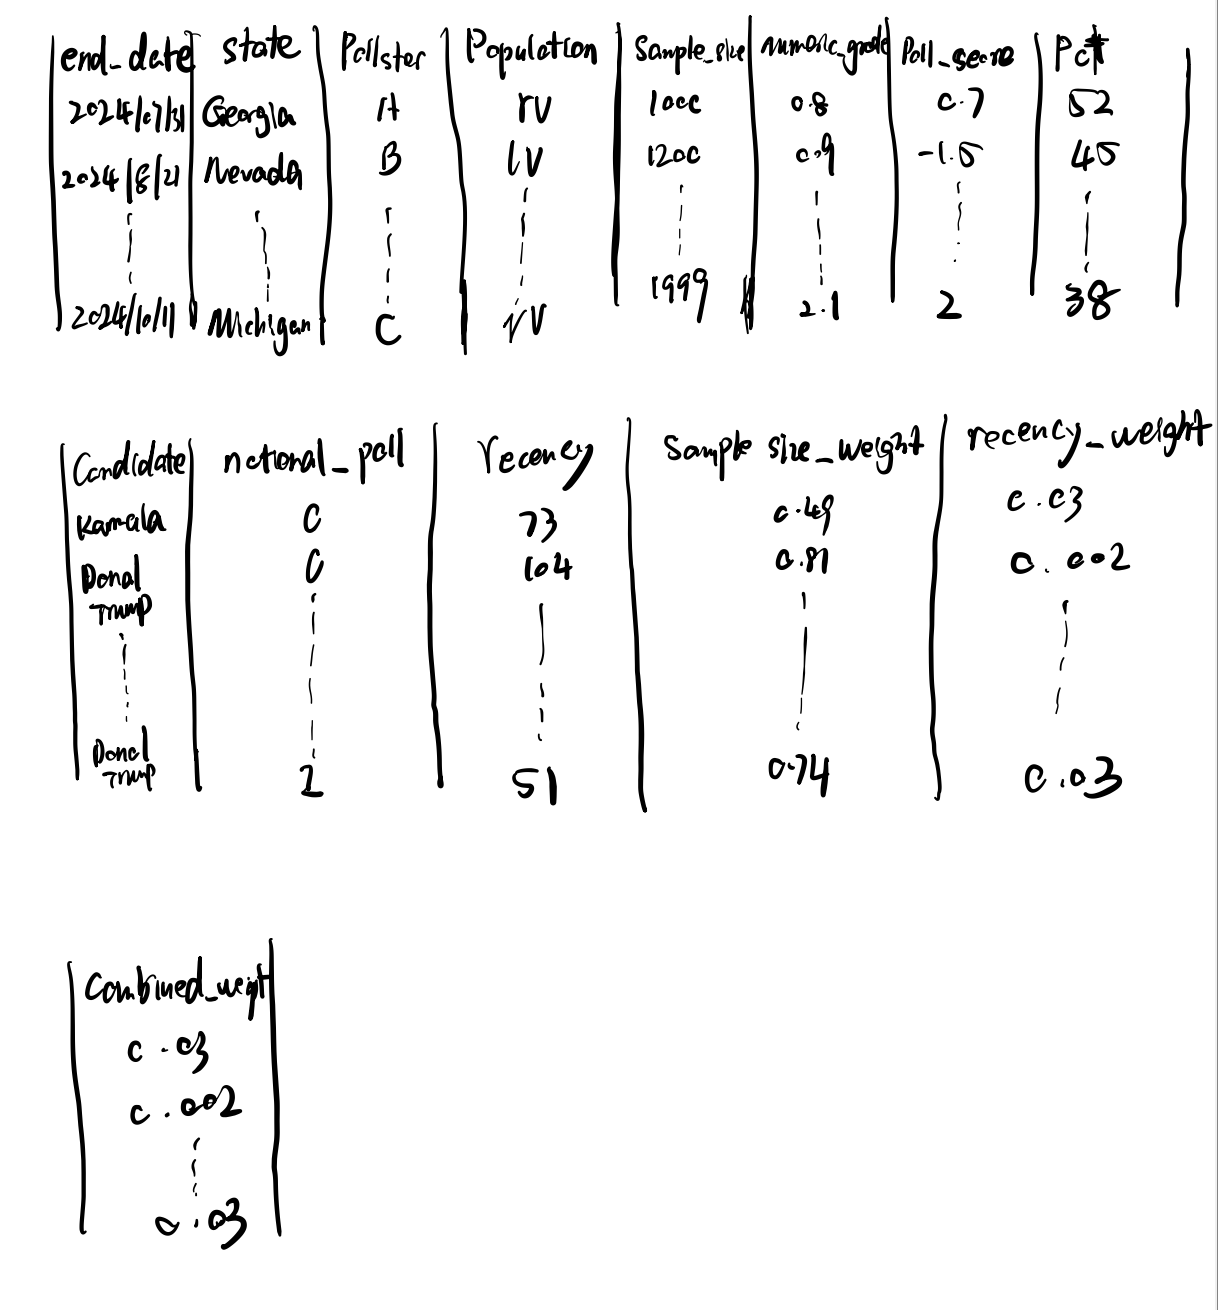 end_date state Pollster Population Sample_size numeric_grade Poll_score Pct
2024/07/31 Georgia A rv 1000 0.8 0.7 52
2024/8/21 Nevada B lv 1200 0.9 -1.5 45
2024/10/11 Michigan C rv 1999 2.1 2 38
Candidate national_poll recency Sample size_weight recency_weight
Kamala 0 73 0.49 0.03
Donal 0 104 0.81 0.002
Trump
Donal
Trump 1 51 0.74 0.03
Combined_weight
0.03
0.002
0.03